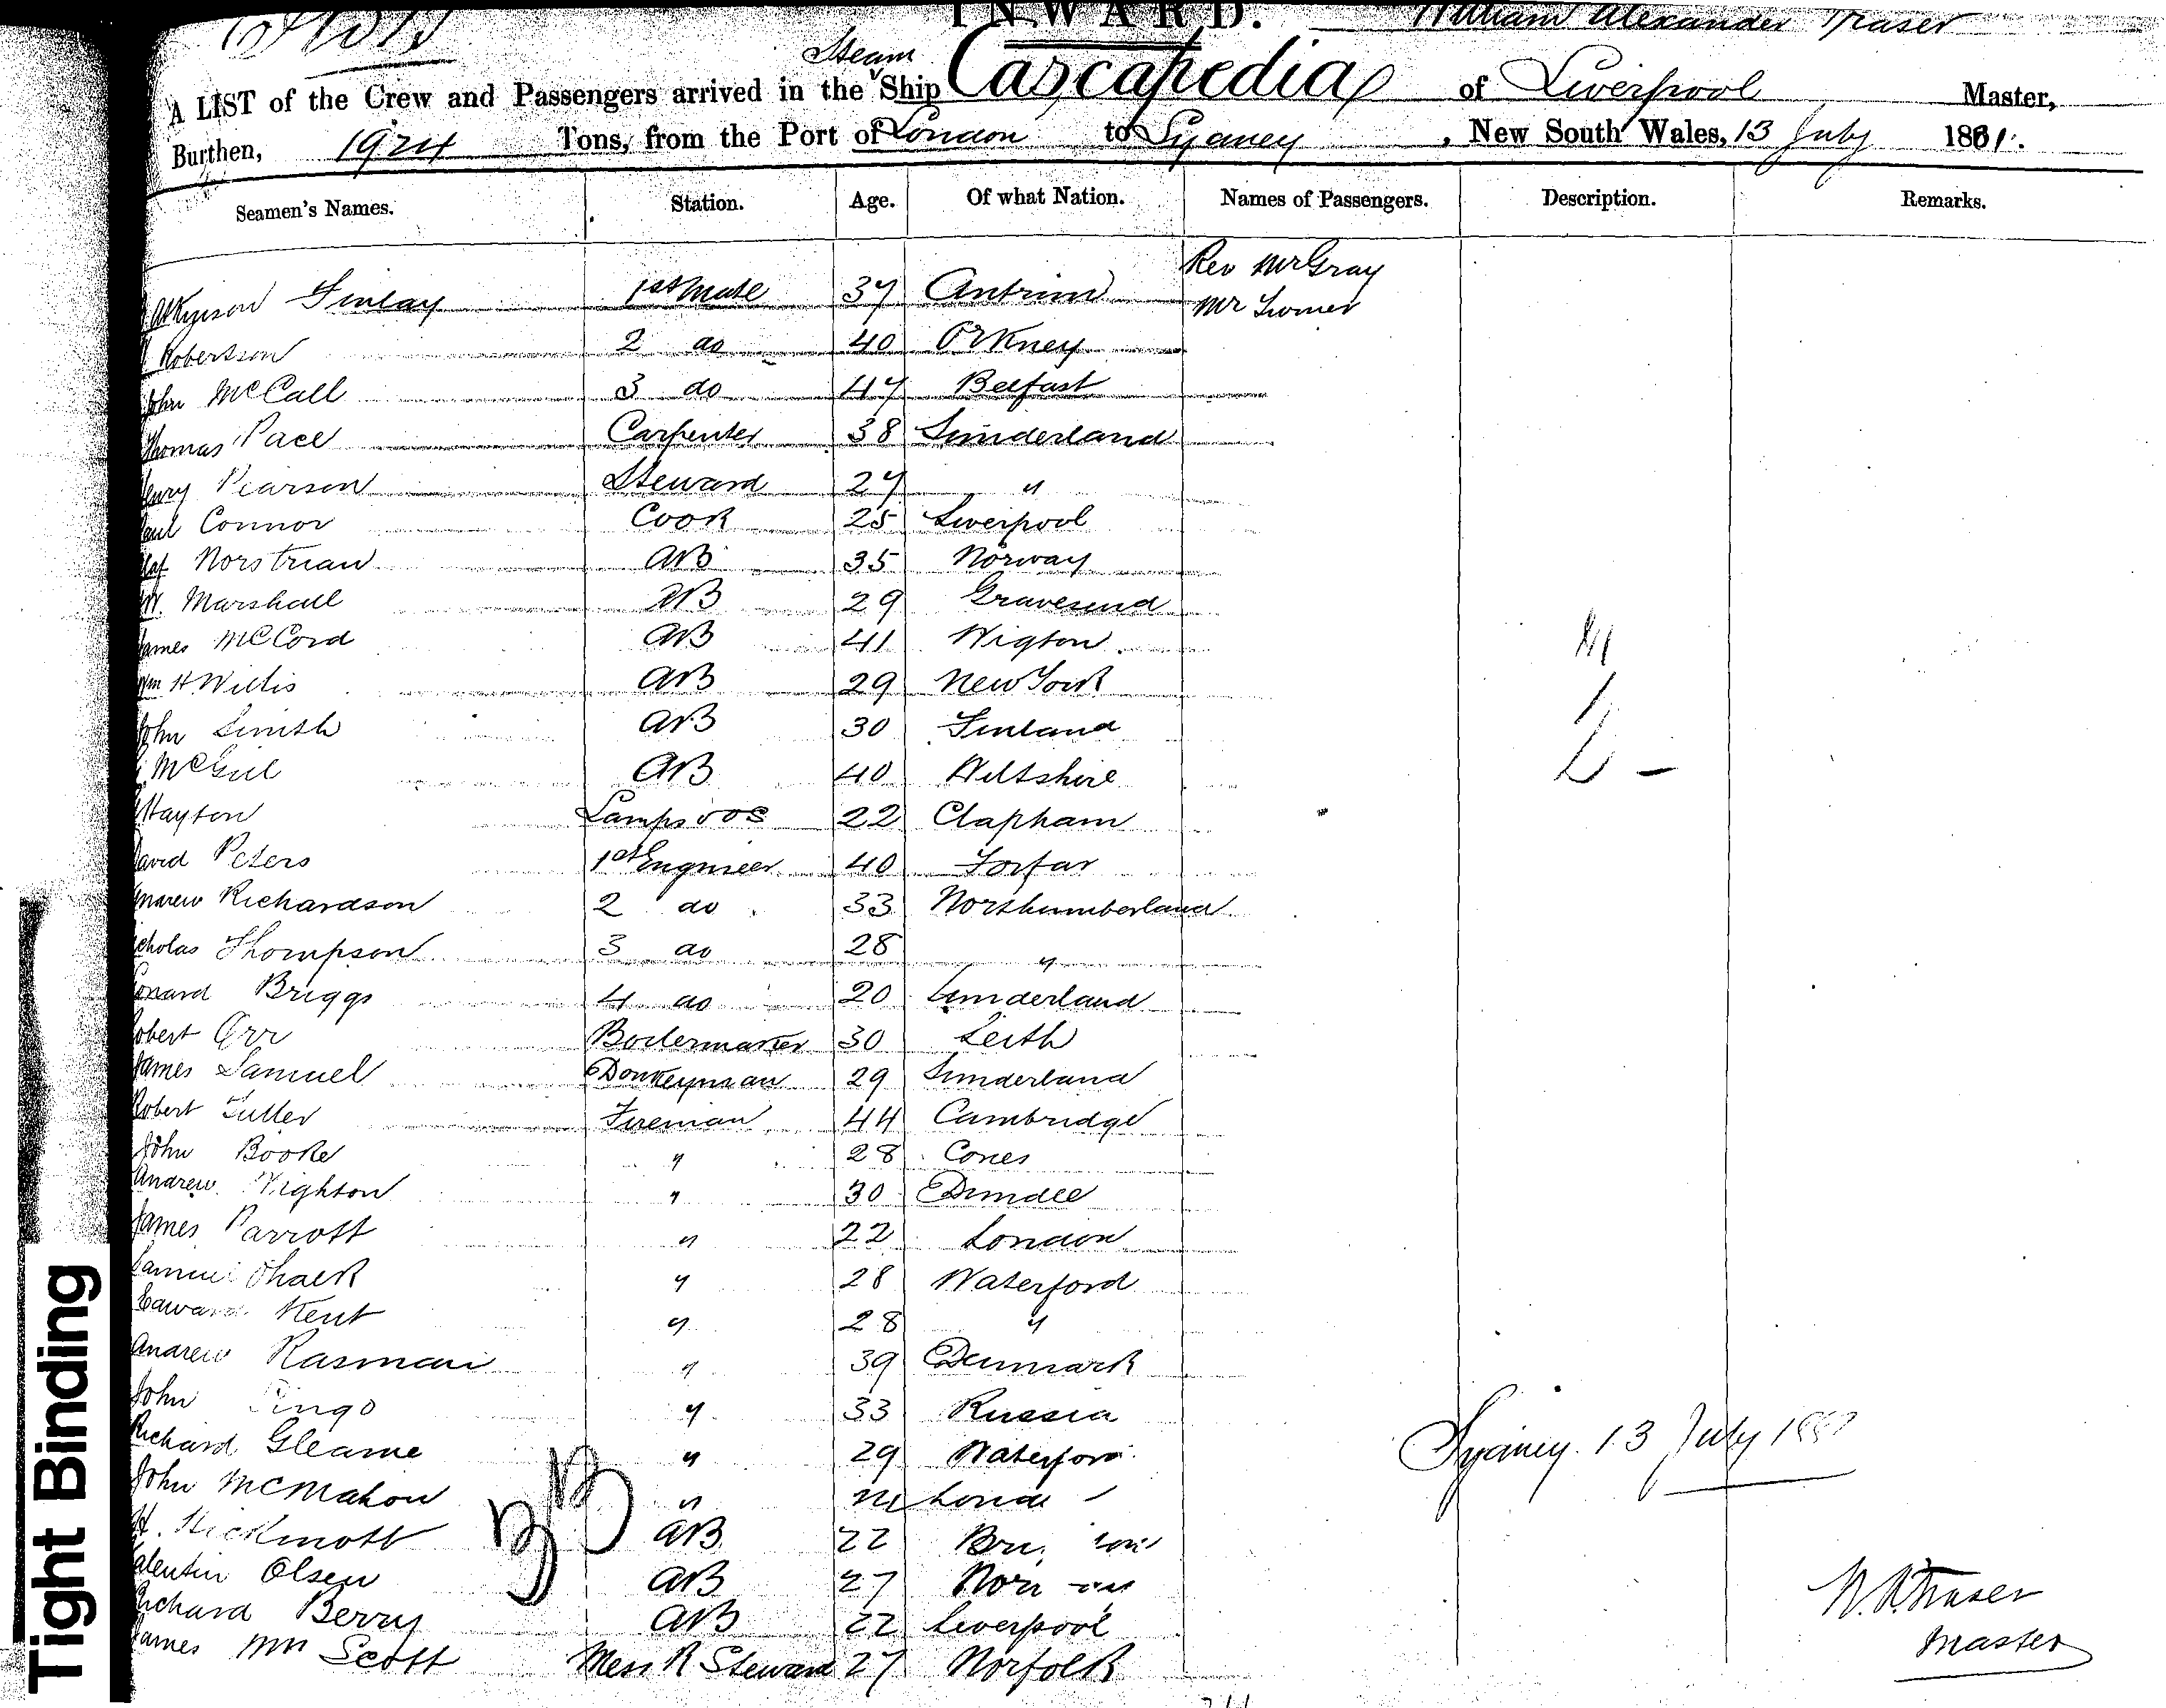 INWARD. William Alexander Fraser
A LIST of the Crew and Passengers arrived in the Steam Ship Cascapedia of Liverpool Master,
Burthen, 1924 Tons, from the Port of London to Sydney, New South Wales, 13 July 1881.
Seamen's Names. Station. Age. Of what Nation. Names of Passengers. Description. Remarks.
Rev Mr Gray
Finlay 1st Mate 37 Antrim Mr
Robertson 2 do 40 Orkney
John McCall 3 do 47 Belfast
Thomas Pace Carpenter 38 Sunderland
Henry Pearson Steward 27 "
Paul Connor Cook 25 Liverpool
Olaf AB 35 Norway
W. Marshall AB 29 Gravesend
James McCord AB 41 Wigton
Wm H Willis AB 29 New York
John Smith AB 30 Finland
AB 40 Wiltshire
Hayton Lamps 22 Clapham
David Peters 1st Engineer 40 Forfar
Andrew Richardson 2 do 33 Northumberland
Nicholas Thompson 3 do 28 "
Briggs 4 do 20 Sunderland
Robert Orr Boilermaker 30 Leith
James Samuel Donkeyman 29 Sunderland
Robert Fuller Fireman 44 Cambridge
John Booke " 28
Andrew Wighton " 30 Dundee
James Parrott " 22 London
" 28 Waterford
Edward Kent " 28 "
Andrew " 39 Denmark
John " 33 Russia
Richard " 29 Waterford
Sydney. 13 July
John McMahon "
H. Hickmott AB 22
Valentin Olsen AB 27
W. A. Fraser
Richard Berry AB 22 Liverpool
Master
James Wm Scott Mess R Steward 27 Norfolk
Tight Binding